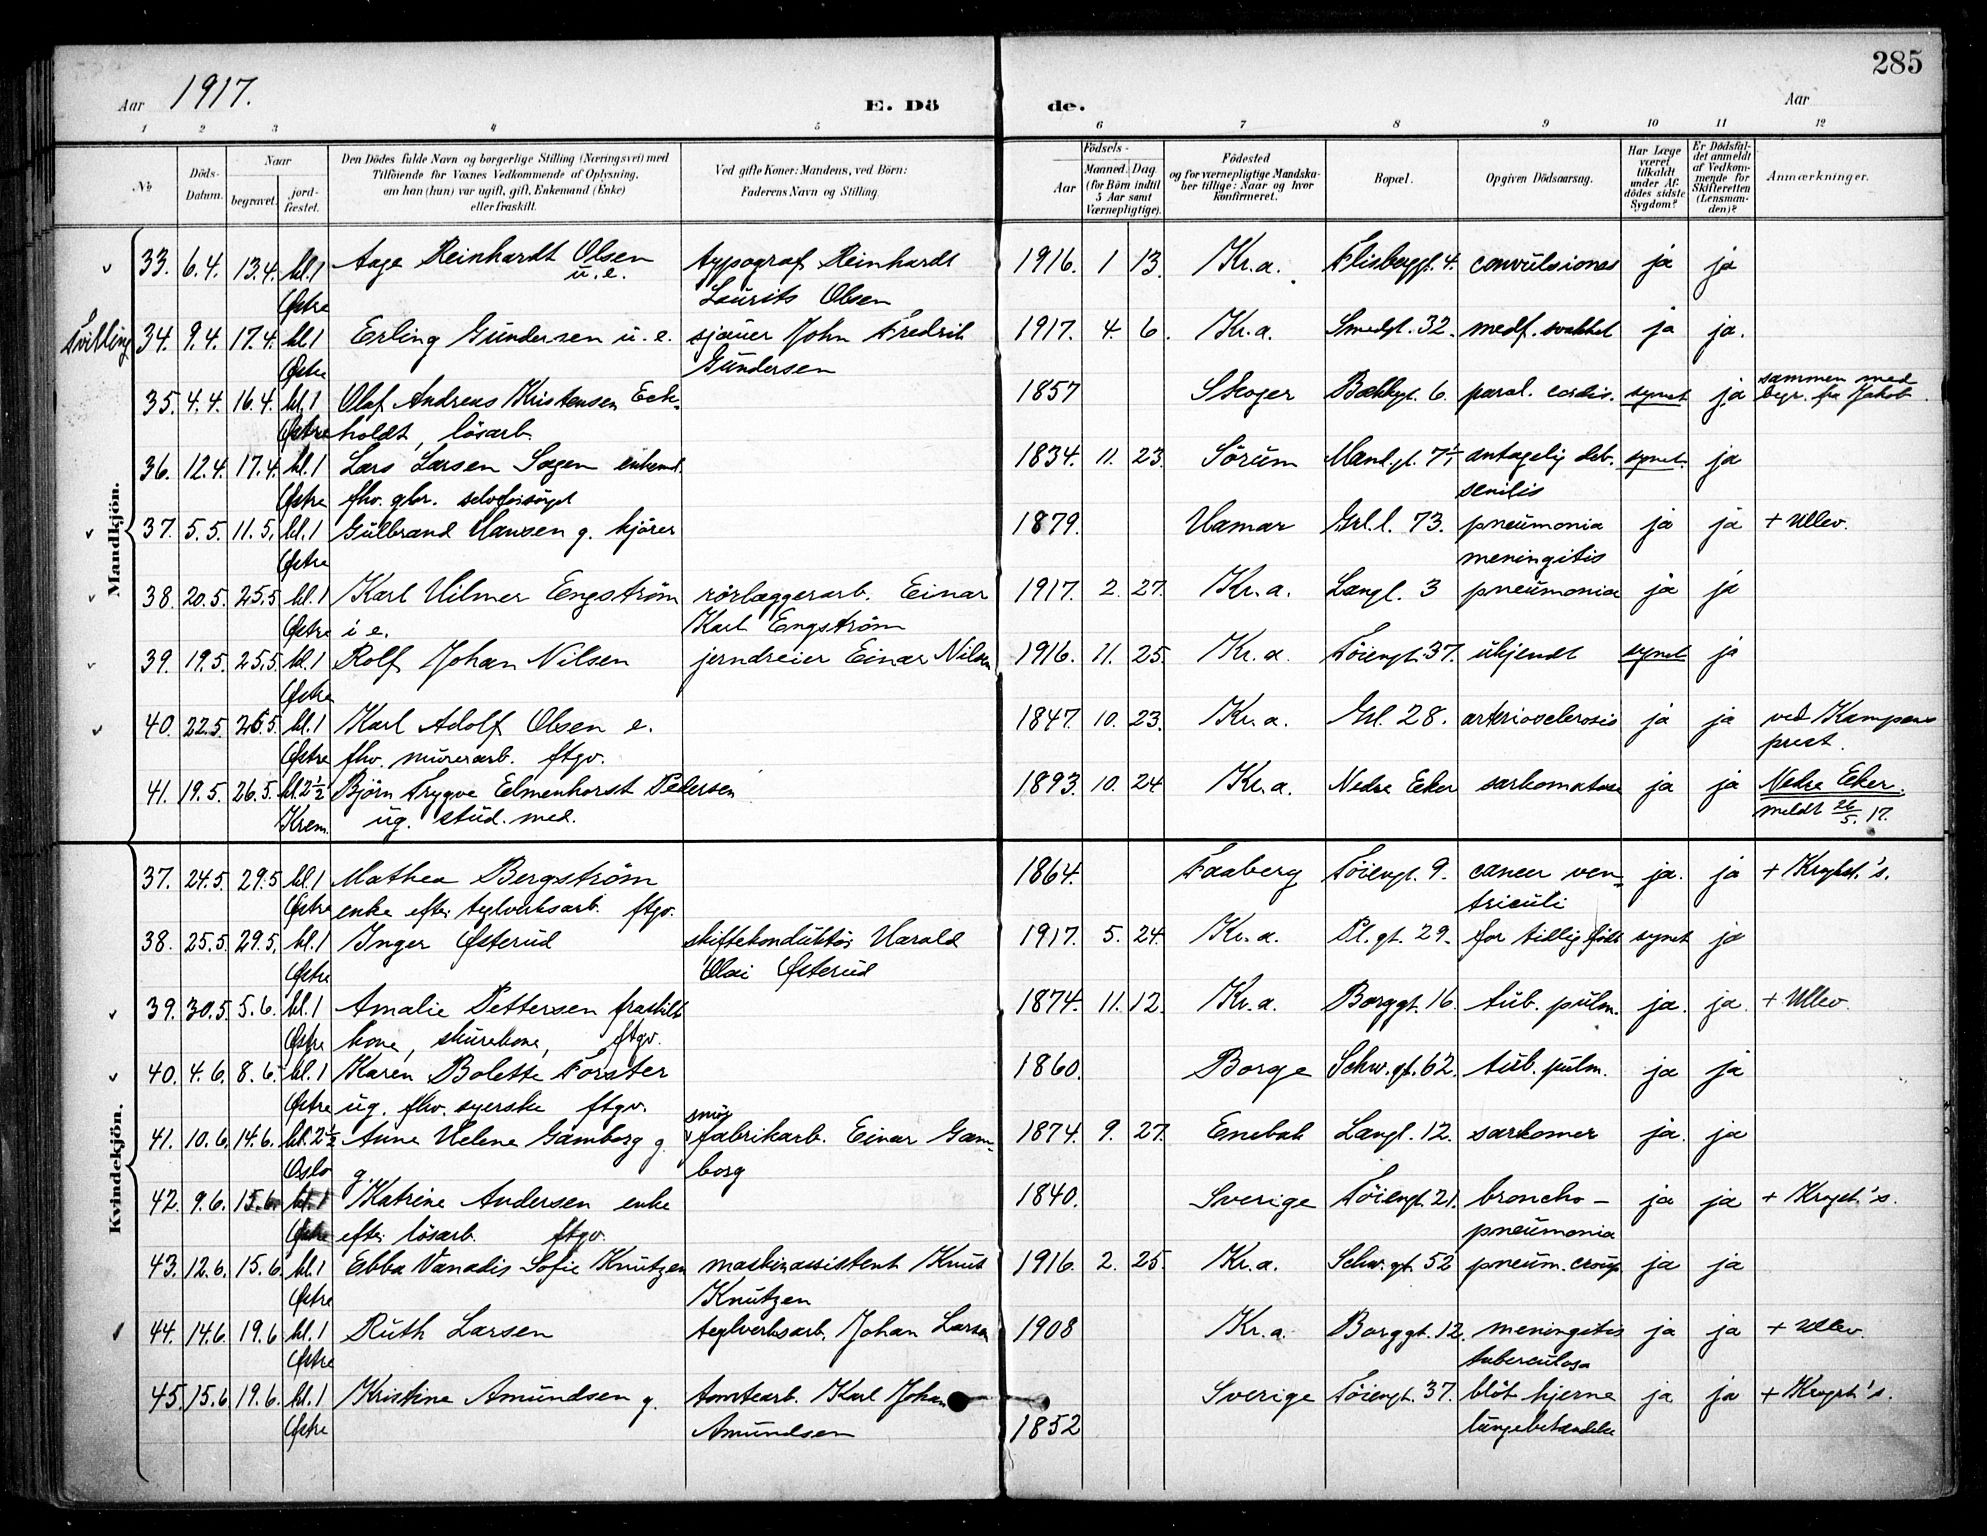 285
Aar 1917. E. Dö de. Aar
1 2 3 4 5 6 7 8 9 10 11 12
No
Döds-Datum.
Naar
begravet.
jordfæstet.
Den Dödes fulde Navn og borgerlige Stilling (Næringsvei) med Tilföiende for Voxnes Vedkommende af Oplysning, om han (hun) var ugift, gift, Enkemand (Enke) eller fraskilt.
Ved gifte Koner: Mandens, ved Börn: Faderens Navn og Stilling.
Födsels-
Aar
Maaned. Dag
(for Börn indtil 5 Aar samt Værnepligtige).
Födested
og for værnepligtige Mandskaber tillige: Naar og hvor konfirmeret.
Bopæl.
Opgiven Dödsaarsag.
Har Læge været tilkaldt under Afdödes sidste Sygdom?
Er Dödsfaldet anmeldt af Vedkommende for Skifteretten (Lensmanden)?
Anmærkninger.
Mandkjön.
33. 6.4. 13.4. kl.1 Aage Reinhardt Olsen typograf Reinhardt 1916. 1 13. Kr.a. Flisberggt. 4. convulsiones ja ja
Østre u.e. Laurits Olsen
Tvilling 34. 9.4. 17.4. kl.1 Erling Gundersen u.e. sjauer John Fredrik 1917. 4. 6. Kr.a. Smedgt. 32. medf. svakhet ja ja.
Østre Gundersen
35. 4.4. 16.4. kl.1 Olaf Andreas Kristensen Eck- 1857 Skoger Bakkegt. 6. paral. cordis. synet ja sammen med
Østre holdt, lösarb. begr. fra Jakob.
36. 12.4. 17.4. kl.1 Lars Larsen Sagen enkemd. 1834. 11. 23. Sörum Mandgt. antagelig deb. synet. ja
Østre fhv. gbr. selvforsörget senilis
37. 5.5. 11.5. kl.1 Gulbrand Hansen g. kjörer 1879. Hamar Grl.l. 73. pneumonia ja ja + Ullev.
Østre meningitis
38. 20.5. 25.5 kl.1 Karl Hilmer Engström rörlæggerarb. Einar 1917. 2. 27. Kr.a. Langl. 3 pneumonia ja ja
Østre i e. Karl Engström
39. 19.5. 25.5. kl.1 Rolf Johan Nilsen jerndreier Einar Nilsen 1916. 11. 25. Kr.a. Töiengt. 37. ukjendt synet ja
Østre
40. 22.5. 26.5. kl.1 Karl Adolf Olsen e. 1847. 10. 23. Kr.a. Grl. 28. arteriosclerosis ja ja ved Kampens
Østre fhv. murerarb. ftgv. prest.
41. 19.5. 26.5. kl.2½ Björn Trygve Eelmenhorst Pedersen 1893. 10. 24 Kr.a. Nedre Eeker sarkomatose ja ja Nedre Eeker.
Krem. ug. stud. med. meldt 26/5. 17.
Kvindekjön.
37. 24.5. 29.5 kl.1 Mathea Bergström 1864. Faaberg Töiengt. 9. cancer ven- ja. ja + Krohgst.'s.
Østre enke efter teglverksarb. ftgv. triculi
38. 25.5. 29.5. kl.1 Inger Østerud skiftekonduktör Harald 1917. 5. 24. Kr.a. Pl.gt. 29. for tidlig födt synet ja
Østre Olai Østerud
39. 30.5. 5.6. kl.1 Amalie Pettersen fraskilt 1874. 11. 12. Kr.a. Borggt. 16. tub. pulm. ja. ja. + Ullev.
Østre kone, skurekone, ftgv.
40. 4.6. 8.6. kl.1 Karen Bolette Forster 1860. Borge Schw.gt. 62. tub. pulm. ja ja
Østre ug. fhv. syerske ftgv.
smör
41. 10.6. 14.6. kl.2½ Anne Helene Gamborg g. fabrikarb. Einar Gam- 1874. 9. 27. Enebak Langl. 12. sarkomer ja. ja
Oslo g. borg
42. 9.6. 15.6. kl.1 Katrine Andersen enke 1840. Sverige Töiengt. 21. broncho- ja ja + Krogst.'s.
Østre efter lösarb. ftgv. pneumonia
43. 12.6. 15.6. kl.1 Ebba Vanadis Sofie Knutzen maskinassistent Knut 1916. 2. 25. Kr.a. Schw.gt. 52 pneum. croup. ja ja
Østre Knutzen
44. 14.6. 19.6 kl.1 Ruth Larsen teglverksarb. Johan Larsen 1908 Kr.a. Borggt. 12. meningitis ja ja + Ullev.
Østre tuberculosa
45. 15.6 19.6. kl.1 Kristine Amundsen g. tomtearb. Karl Johan Sverige Töiengt. 37. blöt hjerne ja ja + Krogst.'s.
Østre Amundsen 1852 lungebetændelse